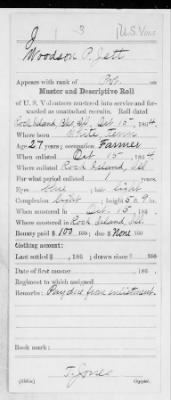 J 1 3 U.S. Vols.
Woodson P. Jett
Appears with rank of Pvt. on
Muster and Descriptive Roll
of U. S. Volunteers mustered into service and forwarded as unattached recruits. Roll dated
Rock Island, Bks, Ill. Oct 15, 1864.
Where born White Tenn
Age 27 years; occupation Farmer
When enlisted Oct 15, 1864.
Where enlisted Rock Island, Ill
For what period enlisted years.
Eyes blue; hair light
Complexion light; height 5 ft. 9 in.
When mustered in Oct. 15, 186 .
Where mustered in Rock Island, Ill.
Bounty paid $ 100 100; due $ None 100
Clothing account:
Last settled , 186 ; drawn since $ 100
Date of first muster , 186 .
Regiment to which assigned
Remarks: Pay due from enlistment.
Book mark:
T. Jones
Copyist.